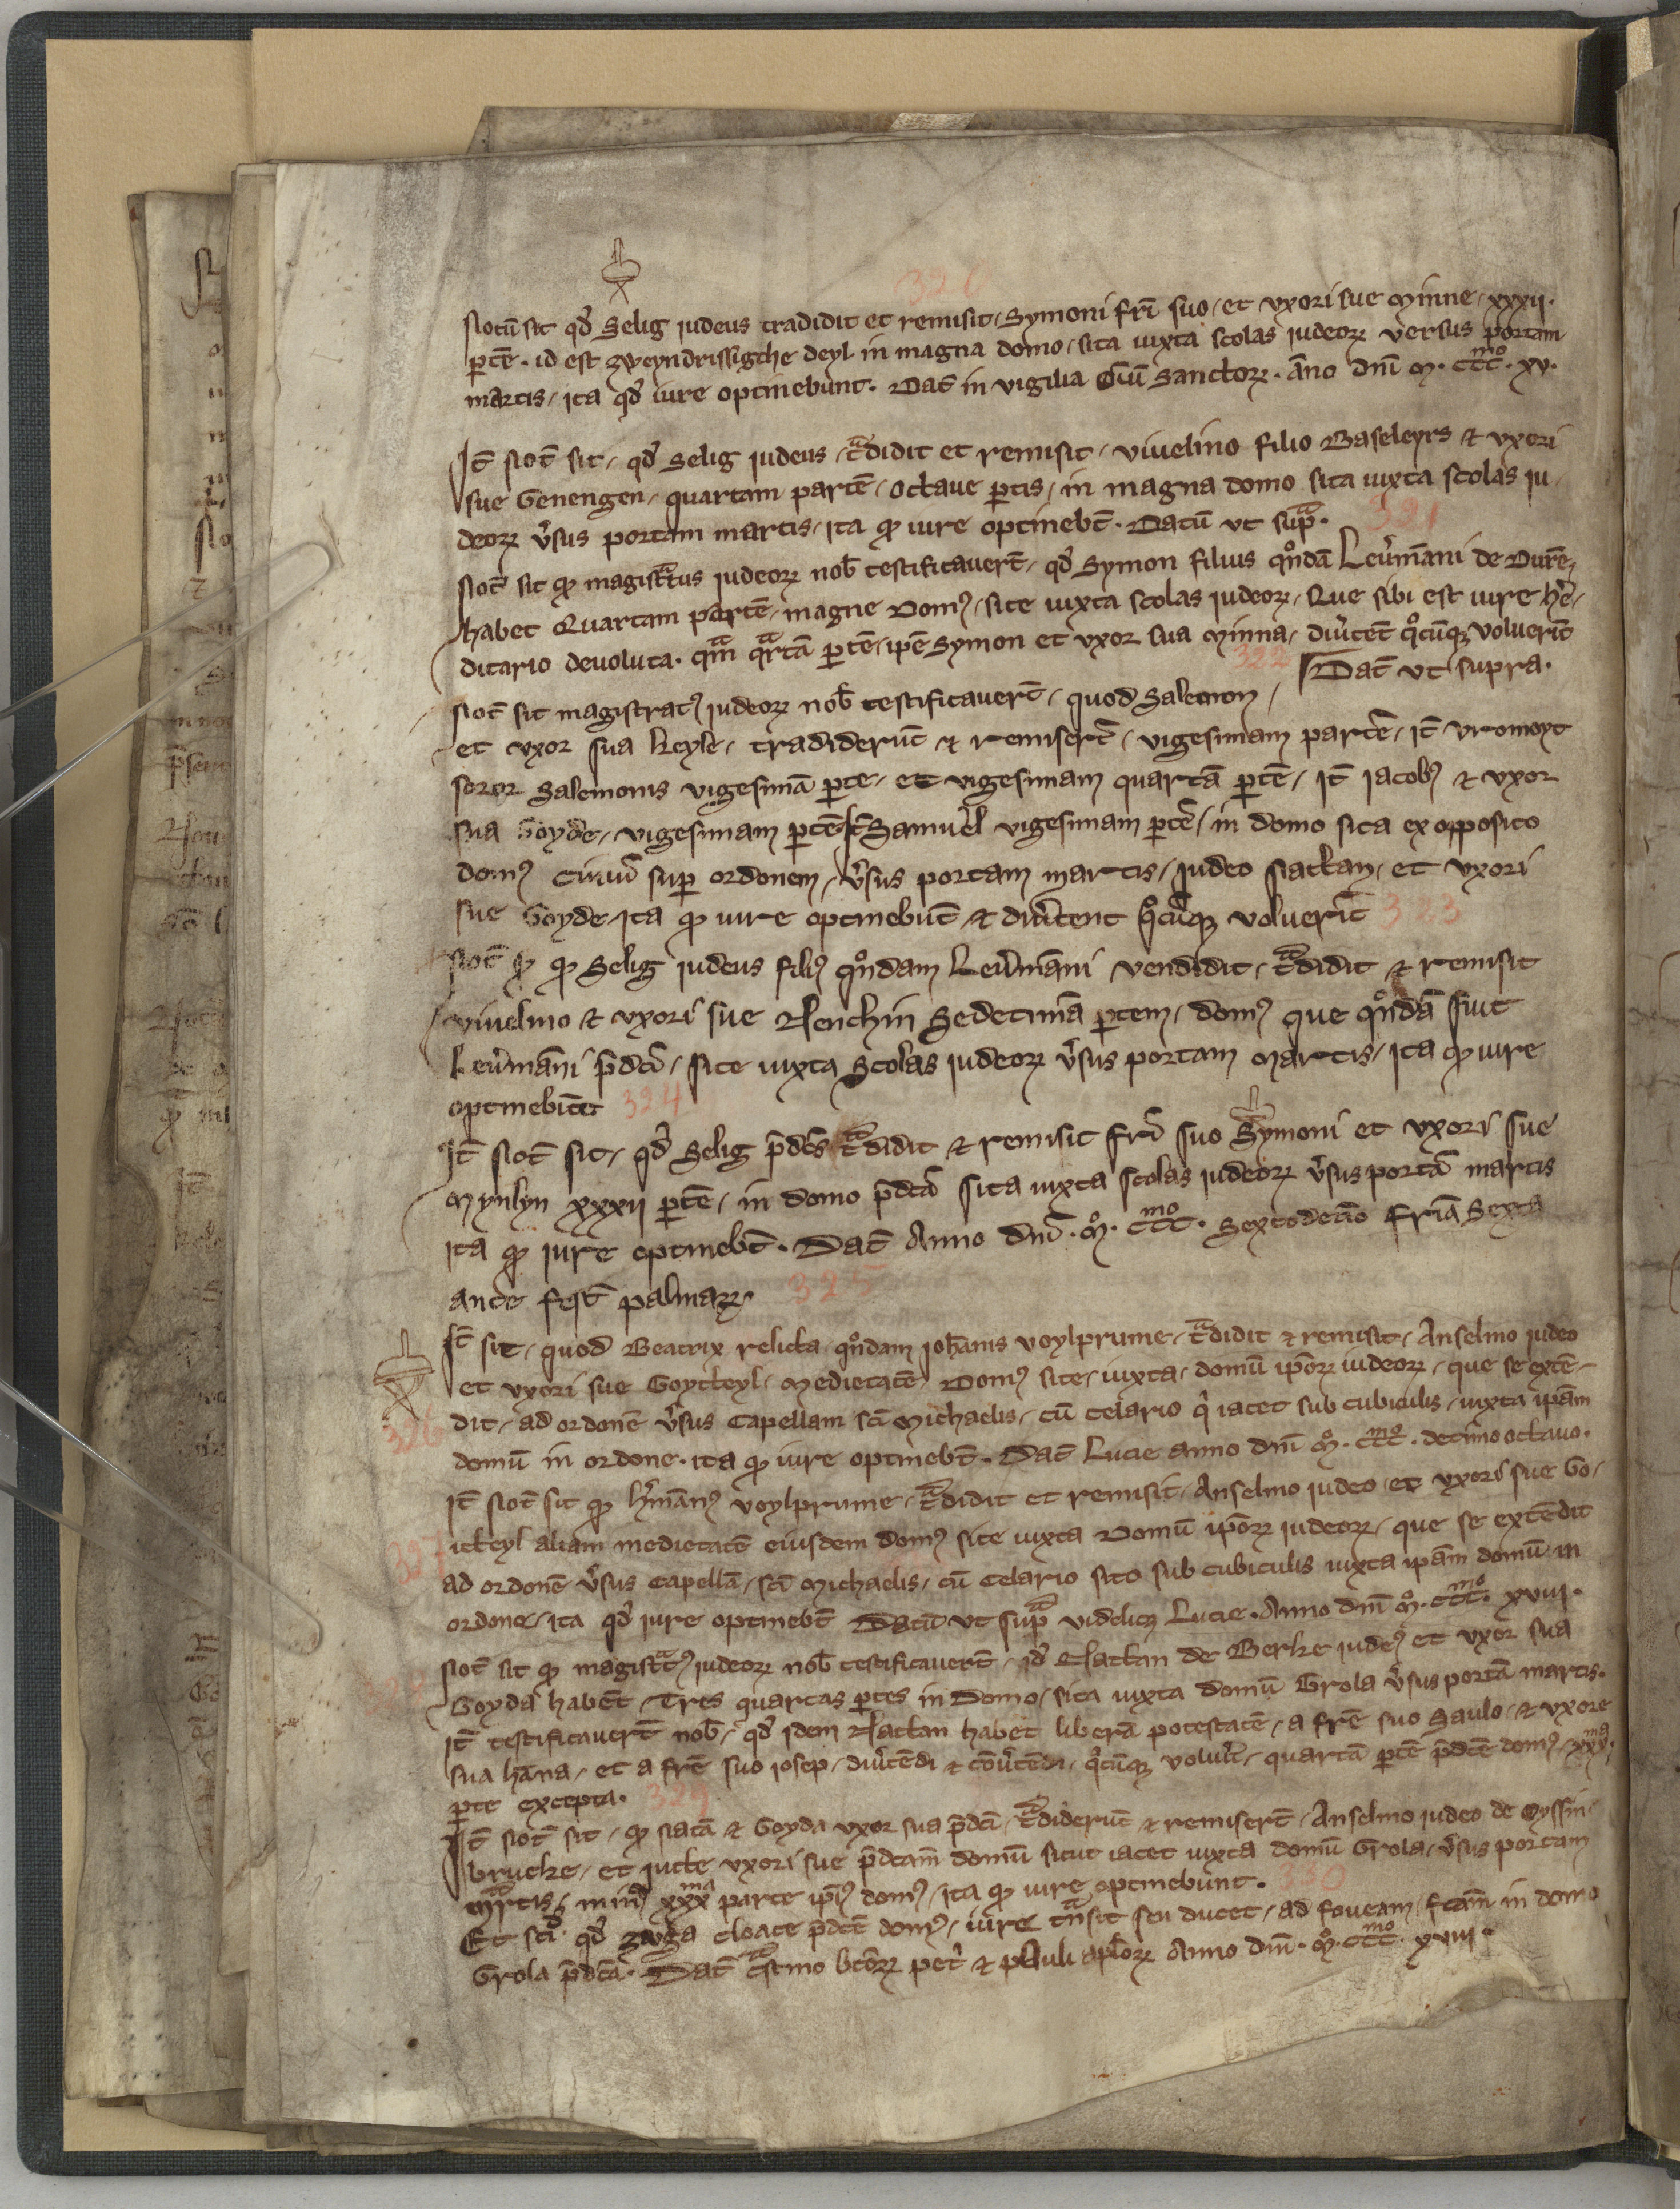 320
Notū sit qd̄ Selig iudeus tradidit et remisit / Symoni fr̄i suo / et vxori sue Minne / xxxij ·
ꝑtē · id est zweyndrissigsthe deyl in magna domo / sita iuxta scolas iudeoꝝ versus portam
martis / ita qd̄ iure optinebunt · Dat̄ in vigilia Om̄ū Sanctoꝝ · Anno dn̄i M · ccc^mo · xv ·
It̄ Not̄ sit / qd̄ Selig iudeus / t^adidit et remisit / viuelmo filio Baseleyrs & vxori
sue Genengen / quartam partē / octaue ꝑtis / in magna domo sita iuxta scolas iu
deoꝝ v̄sus portam martis / ita ꝙ iure optinebt̄ · Datū vt sup^a · 321
Not̄ sit ꝙ magist^atus iudeoꝝ nob̄ testificauert̄ / qd̄ Symon filius qōndā Leūmāni de Durē /
habet Quartam partē / magne Domꝰ / site iuxta scolas iudeoꝝ / Que sibi est iure he /
ditario deuoluta · q^am q^artā ꝑtē / ip̄e Symon et vxor sua Minna / diūtēt q°cūqꝫ voluerīt
322 Dat̄ vt supra ·
Not̄ sit magistratꝰ iudeoꝝ nob̄ testificauert̄ / quod Salemon /
et vxor sua Keyle / tradiderūt & remisert̄ / vigesimam partē / It̄ vromoyt
soror Salemonis vigesimā ꝑte / et vigesimam quartā ꝑtē / It̄ Iacobꝰ & vxor
sua Goyde / vigesimam ꝑtē It̄ Samuel vigesimam ꝑtē / in domo sita ex opposito
domꝰ ciuiū suꝑ ordonem / v̄sus portam martis / iudeo Nathan / et vxori
sue Goyde / ita ꝙ iure optinebūt & diūtent q°cūqꝫ voluerīt 323
Not̄ ꝙ Selig iudeus filiꝰ qōndam Leūmāni vendidit / t^adidit & remisit
viuelmo & vxori sue Renchin Sedecimā ꝑtem / domꝰ que qōndā fuit
Leūmāni p̄dci / site iuxta Scolas iudeoꝝ v̄sus portam Martis / ita ꝙ iure
optinebūt 324
It̄ Not̄ sit / qd̄ Selig p̄dcs t^adidit & remisit fr̄i suo Symoni et vxori sue
Mynlyn xxxij ꝑtē / in domo p̄dcā sita iuxta scolas iudeoꝝ v̄sus portā martis
ita ꝙ iure optinebt̄ · Dat̄ Anno dn̄i · M° · ccc^mo · Sextodecīo Fr̄ia Sexta
ante fest̄ palmaꝝ · 325
It̄ sit / quod Beatrix relicta qōndam Ioh̄anis voylprume / t^adidit & remisit / Anselmo iudeo
et vxori sue Goytheyl / Medietatē Domꝰ site / iuxta / domū ip̄oꝝ iudeoꝝ / que se extē /
326 dit / ad ordonē v̄sus Capellam sci Michaelis / cū Celario q̄ iacet sub cubiculis / iuxta ip̄am
domū in ordone · ita ꝙ iure optinebt̄ · Dat̄ Lucie anno dn̄i M° · ccc^mo · decimo octauo ·
It̄ Not̄ sit ꝙ Hm̄anꝰ voylprume / t^adidit et remisit / Anselmo iudeo / et vxori sue Go /
327 itheyl aliam medietatē eiusdem domꝰ site iuxta Domū ip̄oꝝ iudeoꝝ / que se extēdit
ad ordonē v̄sus Capellā / sci Michaelis / cū Celario sito sub cubiculis iuxta ip̄am domū in
ordone / ita qd̄ iure optinebt̄ Datū vt sup^a videlicꝫ Lucie · Anno dn̄i M° · ccc^mo · xviii ·
Not̄ sit ꝙ magist^atꝰ iudeoꝝ nob̄ testificauert̄ / qd̄ Nathan de Berke iudeꝰ et vxor sua
Goyda habēt / Tres quartas ꝑtes in Domo / sita iuxta domū Grola v̄sus portā martis ·
It̄ testificauert̄ nob̄ / qd̄ idem Nathan habet liberā potestatē / a fr̄e suo Saulo / & vxore
sua hāna / et a fr̄e suo Iosep / diūtēdi & cōūtēdi / q°cūqꝫ voluīt / quartā ꝑtē p̄dcē domꝰ / xxx^ma
ꝑte excepta · 329
It̄ Not̄ sit / ꝙ Natā & Goyda vxor sua p̄dcā / t^adiderūt & remisert̄ / Anselmo iudeo de Oyssin
brucke / et Iutte vxori sue p̄dcam domū sicut iacet iuxta domū Grola / v̄sus portam
m^artis / minꝰ xxx^ma parte ip̄iꝰ domꝰ / ita ꝙ iure optinebunt · 330
Et sci qd̄ cloace p̄dcē domꝰ / iure t^ansit seu ducet / ad foueam / fcām in domo
Grola p̄dcā · Dat̄ c^astino bt̄oꝝ pet̄ & pauli apl̄oꝝ Anno dn̄i · M° · ccc^mo · xviii ·